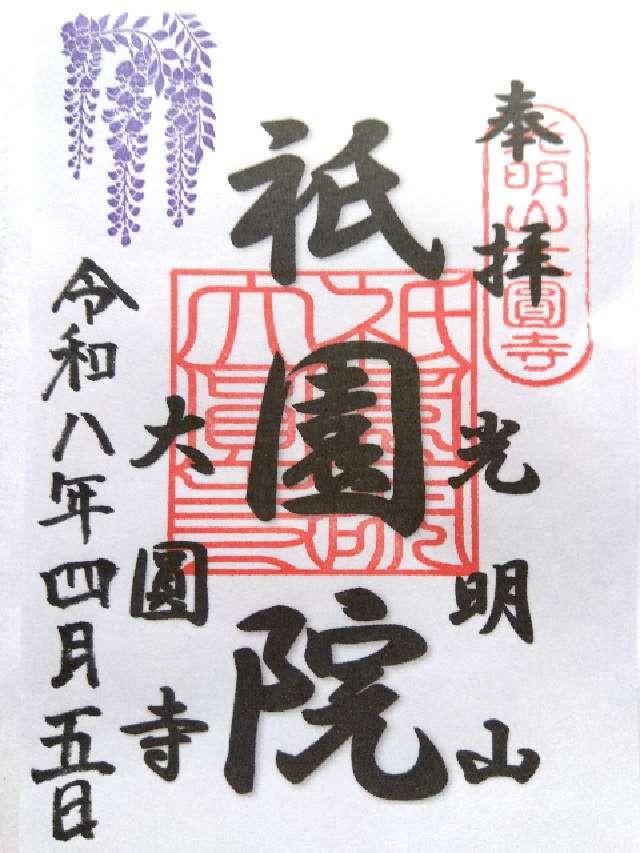 奉拝
光明山
光明山大圓寺
祇園院
祇園院
大圓寺
大圓寺
令和八年四月五日